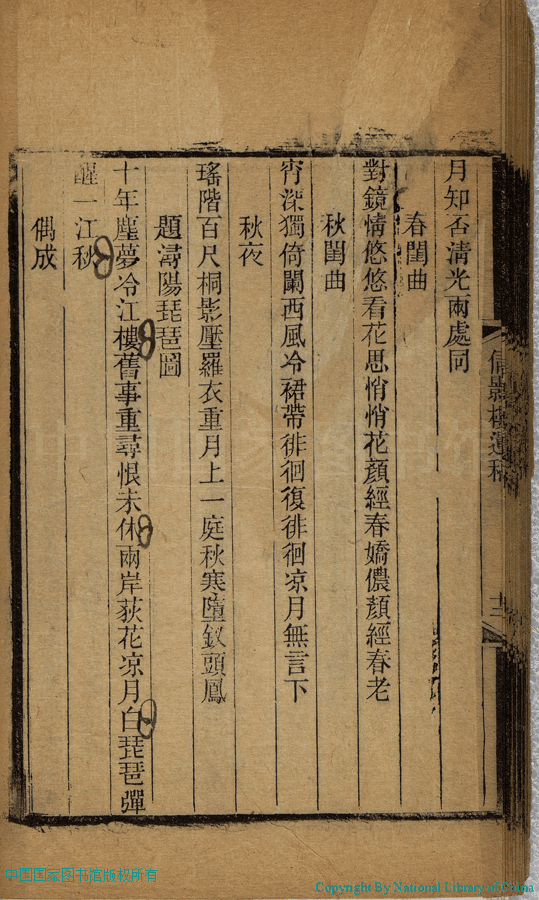 月知否清光兩處同
春閨曲
對鏡情悠悠看花思悄悄花顏經春嬌儂顏經春老
秋閨曲
宵深獨倚闌西風冷裙帶徘徊復徘徊凉月無言下
秋夜
瑤階百尺桐影壓羅衣重月上一庭秋寒墮釵頭鳳
題潯陽琵琶圖
十年塵夢冷江樓舊事重尋恨未休兩岸荻花凉月白琵琶彈
醒一江秋
偶成
倩影樓遺稿
十二
中国国家图书馆版权所有
Copyright By National Library of China